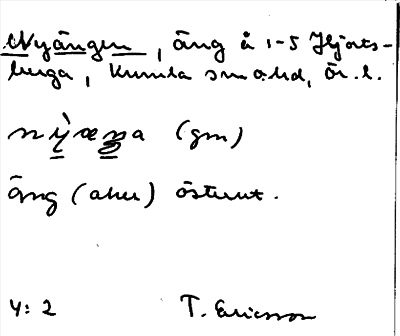 Nyängen, äng å 1-5 Hjorts-
berga, Kumla sn o. hd, Ör. l.
nỳæŋa (gm)
äng (åker) österut.
4: 2 T. Ericsson